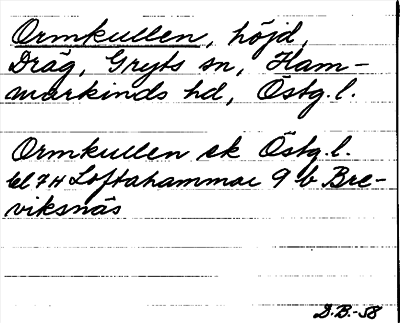 Ormkullen, höjd,
Dräg, Gryts sn, Ham-
markinds hd, Östg.l.
Ormkullen ek Östg.l.
bl 7H Loftahammar 9 b Bre-
viksnäs
D.B.-58